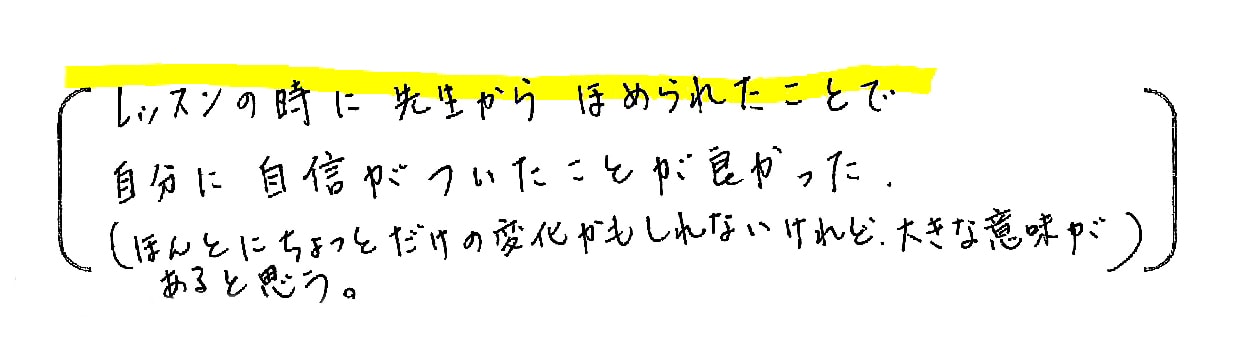 レッスンの時に 先生から ほめられたことで
自分に 自信がついたことが良かった.
(ほんとにちょっとだけの変化かもしれないけれど、大きな意味が)
あると思う。